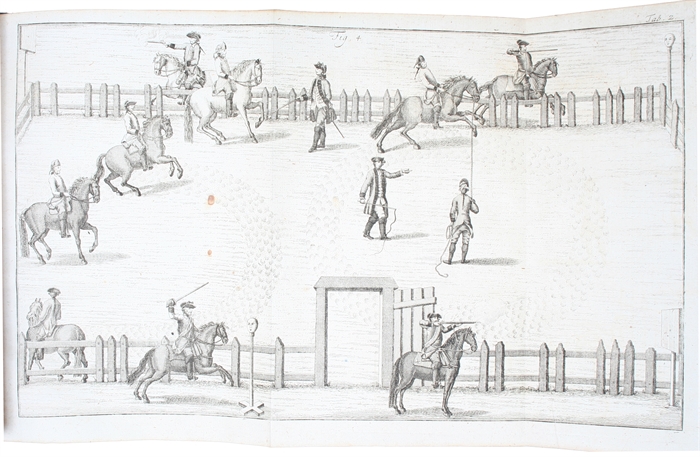 Fig 4.
Tab. 2.